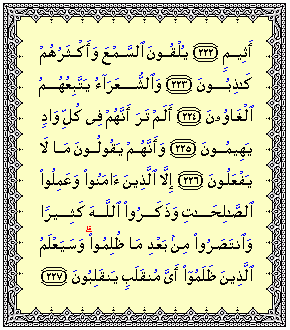 أَثِيمٍ ﴿٢٢٢﴾ يُلْقُونَ ٱلسَّمْعَ وَأَكْثَرُهُمْ
كَٰذِبُونَ ﴿٢٢٣﴾ وَٱلشُّعَرَآءُ يَتَّبِعُهُمُ
ٱلْغَاوُۥنَ ﴿٢٢٤﴾ أَلَمْ تَرَ أَنَّهُمْ فِى كُلِّ وَادٍ
يَهِيمُونَ ﴿٢٢٥﴾ وَأَنَّهُمْ يَقُولُونَ مَا لَا
يَفْعَلُونَ ﴿٢٢٦﴾ إِلَّا ٱلَّذِينَ ءَامَنُوا۟ وَعَمِلُوا۟
ٱلصَّٰلِحَٰتِ وَذَكَرُوا۟ ٱللَّهَ كَثِيرًا
وَٱنتَصَرُوا۟ مِنۢ بَعْدِ مَا ظُلِمُوا۟ ۗ وَسَيَعْلَمُ
ٱلَّذِينَ ظَلَمُوٓا۟ أَىَّ مُنقَلَبٍ يَنقَلِبُونَ ﴿٢٢٧﴾